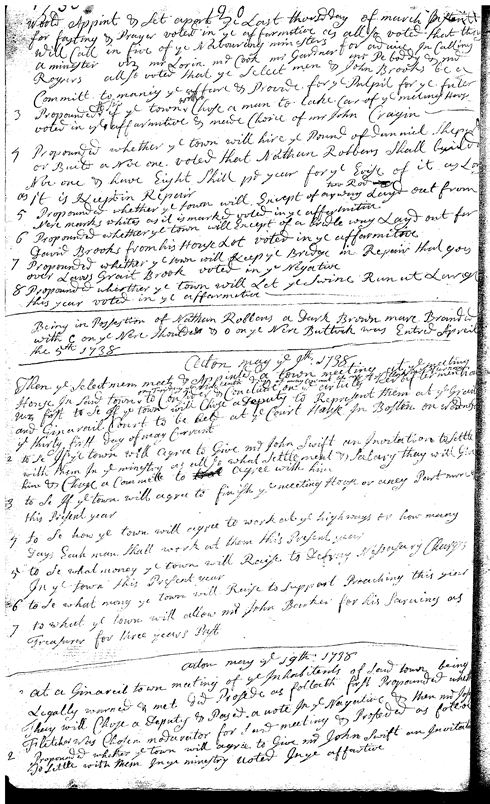 vote Appint & Set apart ye Last thursday of march
for fasting & Prayer voted in ye affarmitive as allso voted that they
will call in five of ye Nabouring minsters for advice In Calling
a minister viz mr Lorin mr Cook mr Gardner mr Pebody & mr
Rogers allso voted that ye Select men & John Brooks be a
Committ to manig ye affare & Provide for ye Pulpit for ye futer
3 Propounded if ye town will Chuse a man to take Car of ye meeting House
voted in ye affarmitive & made Choice of mr John Cragin
4 Propounded whether ye town will hire ye Pound of Danniel Shepard
or Build a New one voted that Nathan Robbens Shall Build
New one & have Eight Shill pr year for ye Use of it as Long
as it is Keept in Repair
5 Propounded whether ye town will Except of a way Layd out from
Nere marks whits as it is marked voted in ye affarmitive
6 Propounded whether ye town will Except of a Bridle way Layd out for
David Brooks from his House Lot voted in ye affarmitive
7 Propounded whether ye town will Keep ye Bridge in Repair that goes
over Laws Grait Brook voted in ye Negative
8 Propounded whether ye town will Let ye Swine Run at Large
this year voted in ye affarmitive
Being in Possestion of Nathan Robbens a Dark Brown mare Branded
with C on ye Nere Shoulder & O on ye Nere Buttock was Entred April
the 5th 1738
Acton may ye 9th 1738
Then ye Select men meet & Appinted a town meeting at ye meeting
House In said town to Consider & Conclude on ye Perticulers hereafter mentioned
first to Se If ye town will Chuse a Deputy to Represent them at ye Grait
and Ginarail Court to be held at ye Court House In Boston on Wednsday
ye thirty first day of may Currant
2 to Se If ye town will agree to Give mr John Swift an Invitation to Settle
with them In ye ministry as allso what Settlement & Salary they will Give
him & Chuse a Committe to agree with him
3 to Se If ye town will agree to finish ye meeting House or aney Part more
this Present year
4 to Se how ye town will agree to work at ye highways or how maney
days Each man Shall work at them this Present year
5 to Se what money ye town will Raise to Defray Nessesary Charges
In ye town this Present year
6 to Se what money ye town will Raise to Support Preaching this year
7 to Se what ye town will allow mr John Barker for his Sarvices as
Treasurer for three years Past
Acton may ye 19th 1738
at a Ginareil town meeting of ye Inhabitents of Said town being
Legally warned & met did Prosede as folloth first Propounded whether
They will Chuse a Deputy & Payed a vote In ye Nagative & then mr
Fletcher was Chosen moderator for Said meeting & Proseded as foloth
2 Propounded whether ye town will agree to Give mr John Swift an Invitation
to Settle with them In ye ministry voted In ye affartive